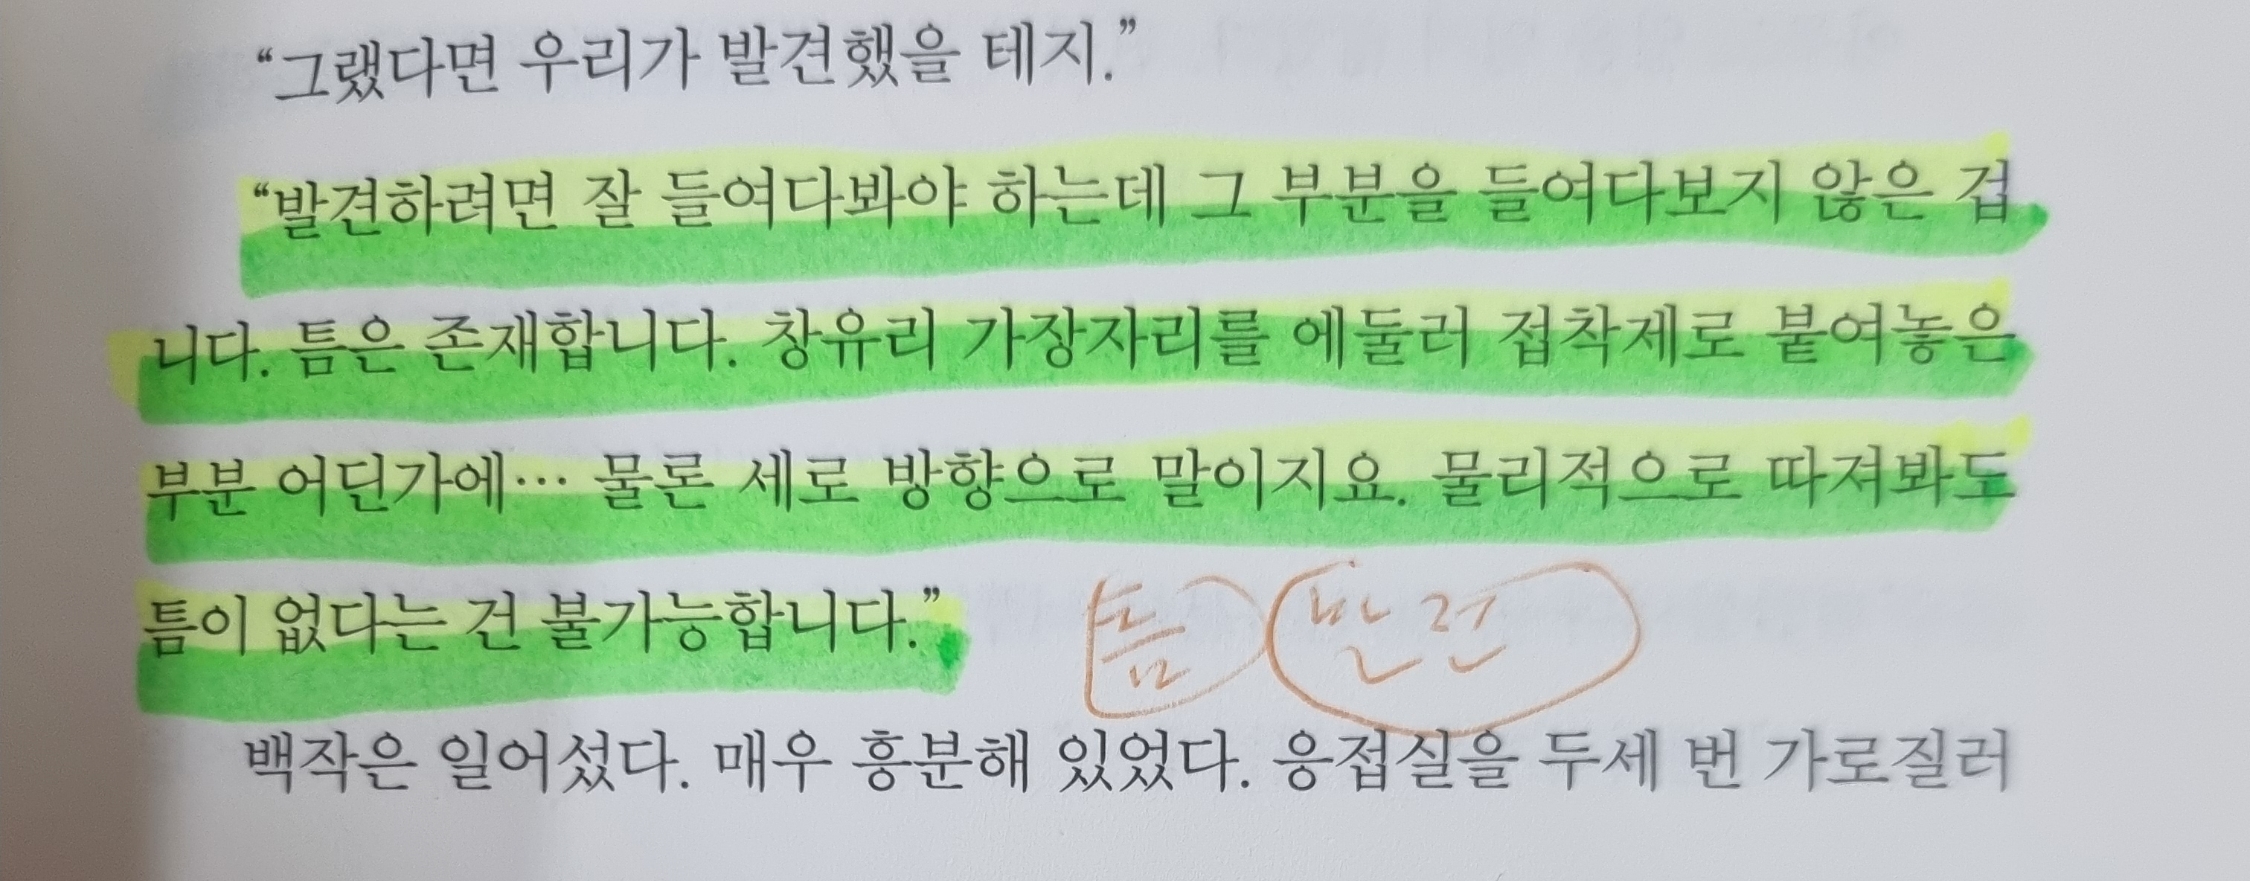 “그랬다면 우리가 발견했을 테지.”
“발견하려면 잘 들여다봐야 하는데 그 부분을 들여다보지 않은 겁
니다. 틈은 존재합니다. 창유리 가장자리를 에둘러 접착제로 붙여놓은
부분 어딘가에… 물론 세로 방향으로 말이지요. 물리적으로 따져봐도
틈이 없다는 건 불가능합니다.”
틈 발견
백작은 일어섰다. 매우 흥분해 있었다. 응접실을 두세 번 가로질러